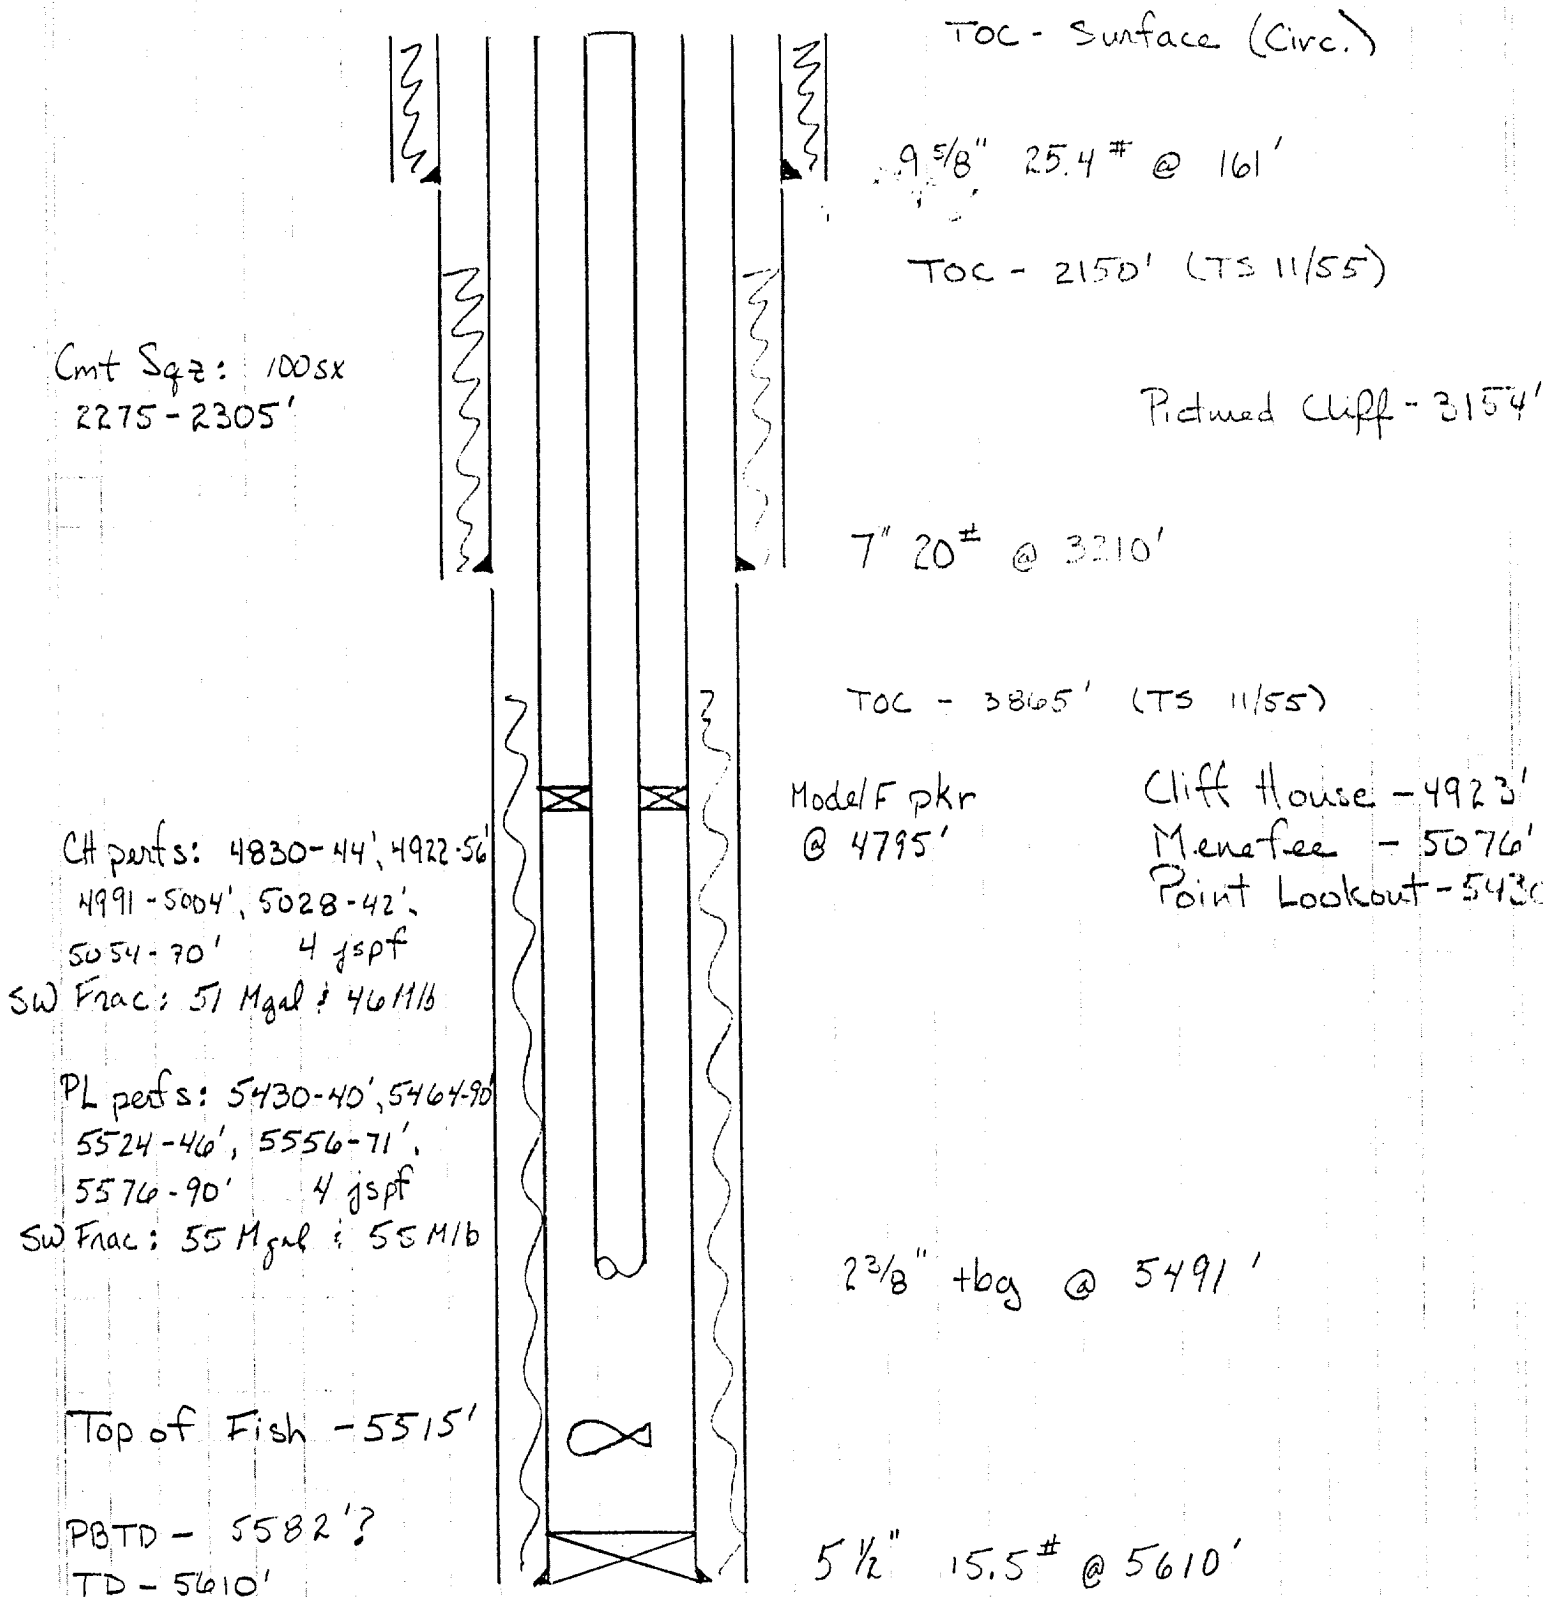 TOC - Surface (Circ.)
9 5/8" 25.4# @ 161'
TOC - 2150' (TS 11/55)
Cmt Sqz: 100sx
2275-2305'
Pictured Cliff - 3154'
7" 20# @ 3210'
TOC - 3865' (TS 11/55)
Model F pkr
@ 4795'
Cliff House - 4923'
Menefee - 5076'
Point Lookout - 5430
CH perfs: 4830-44', 4922-56'
4991-5004', 5028-42',
5054-70' 4 jspf
SW Frac: 51 Mgal & 46 Mlb
PL perfs: 5430-40', 5464-90'
5524-46', 5556-71',
5576-90' 4 jspf
SW Frac: 55 Mgal & 55 Mlb
2 3/8" tbg @ 5491'
Top of Fish - 5515'
PBTD - 5582'?
TD - 5610'
5 1/2" 15.5# @ 5610'